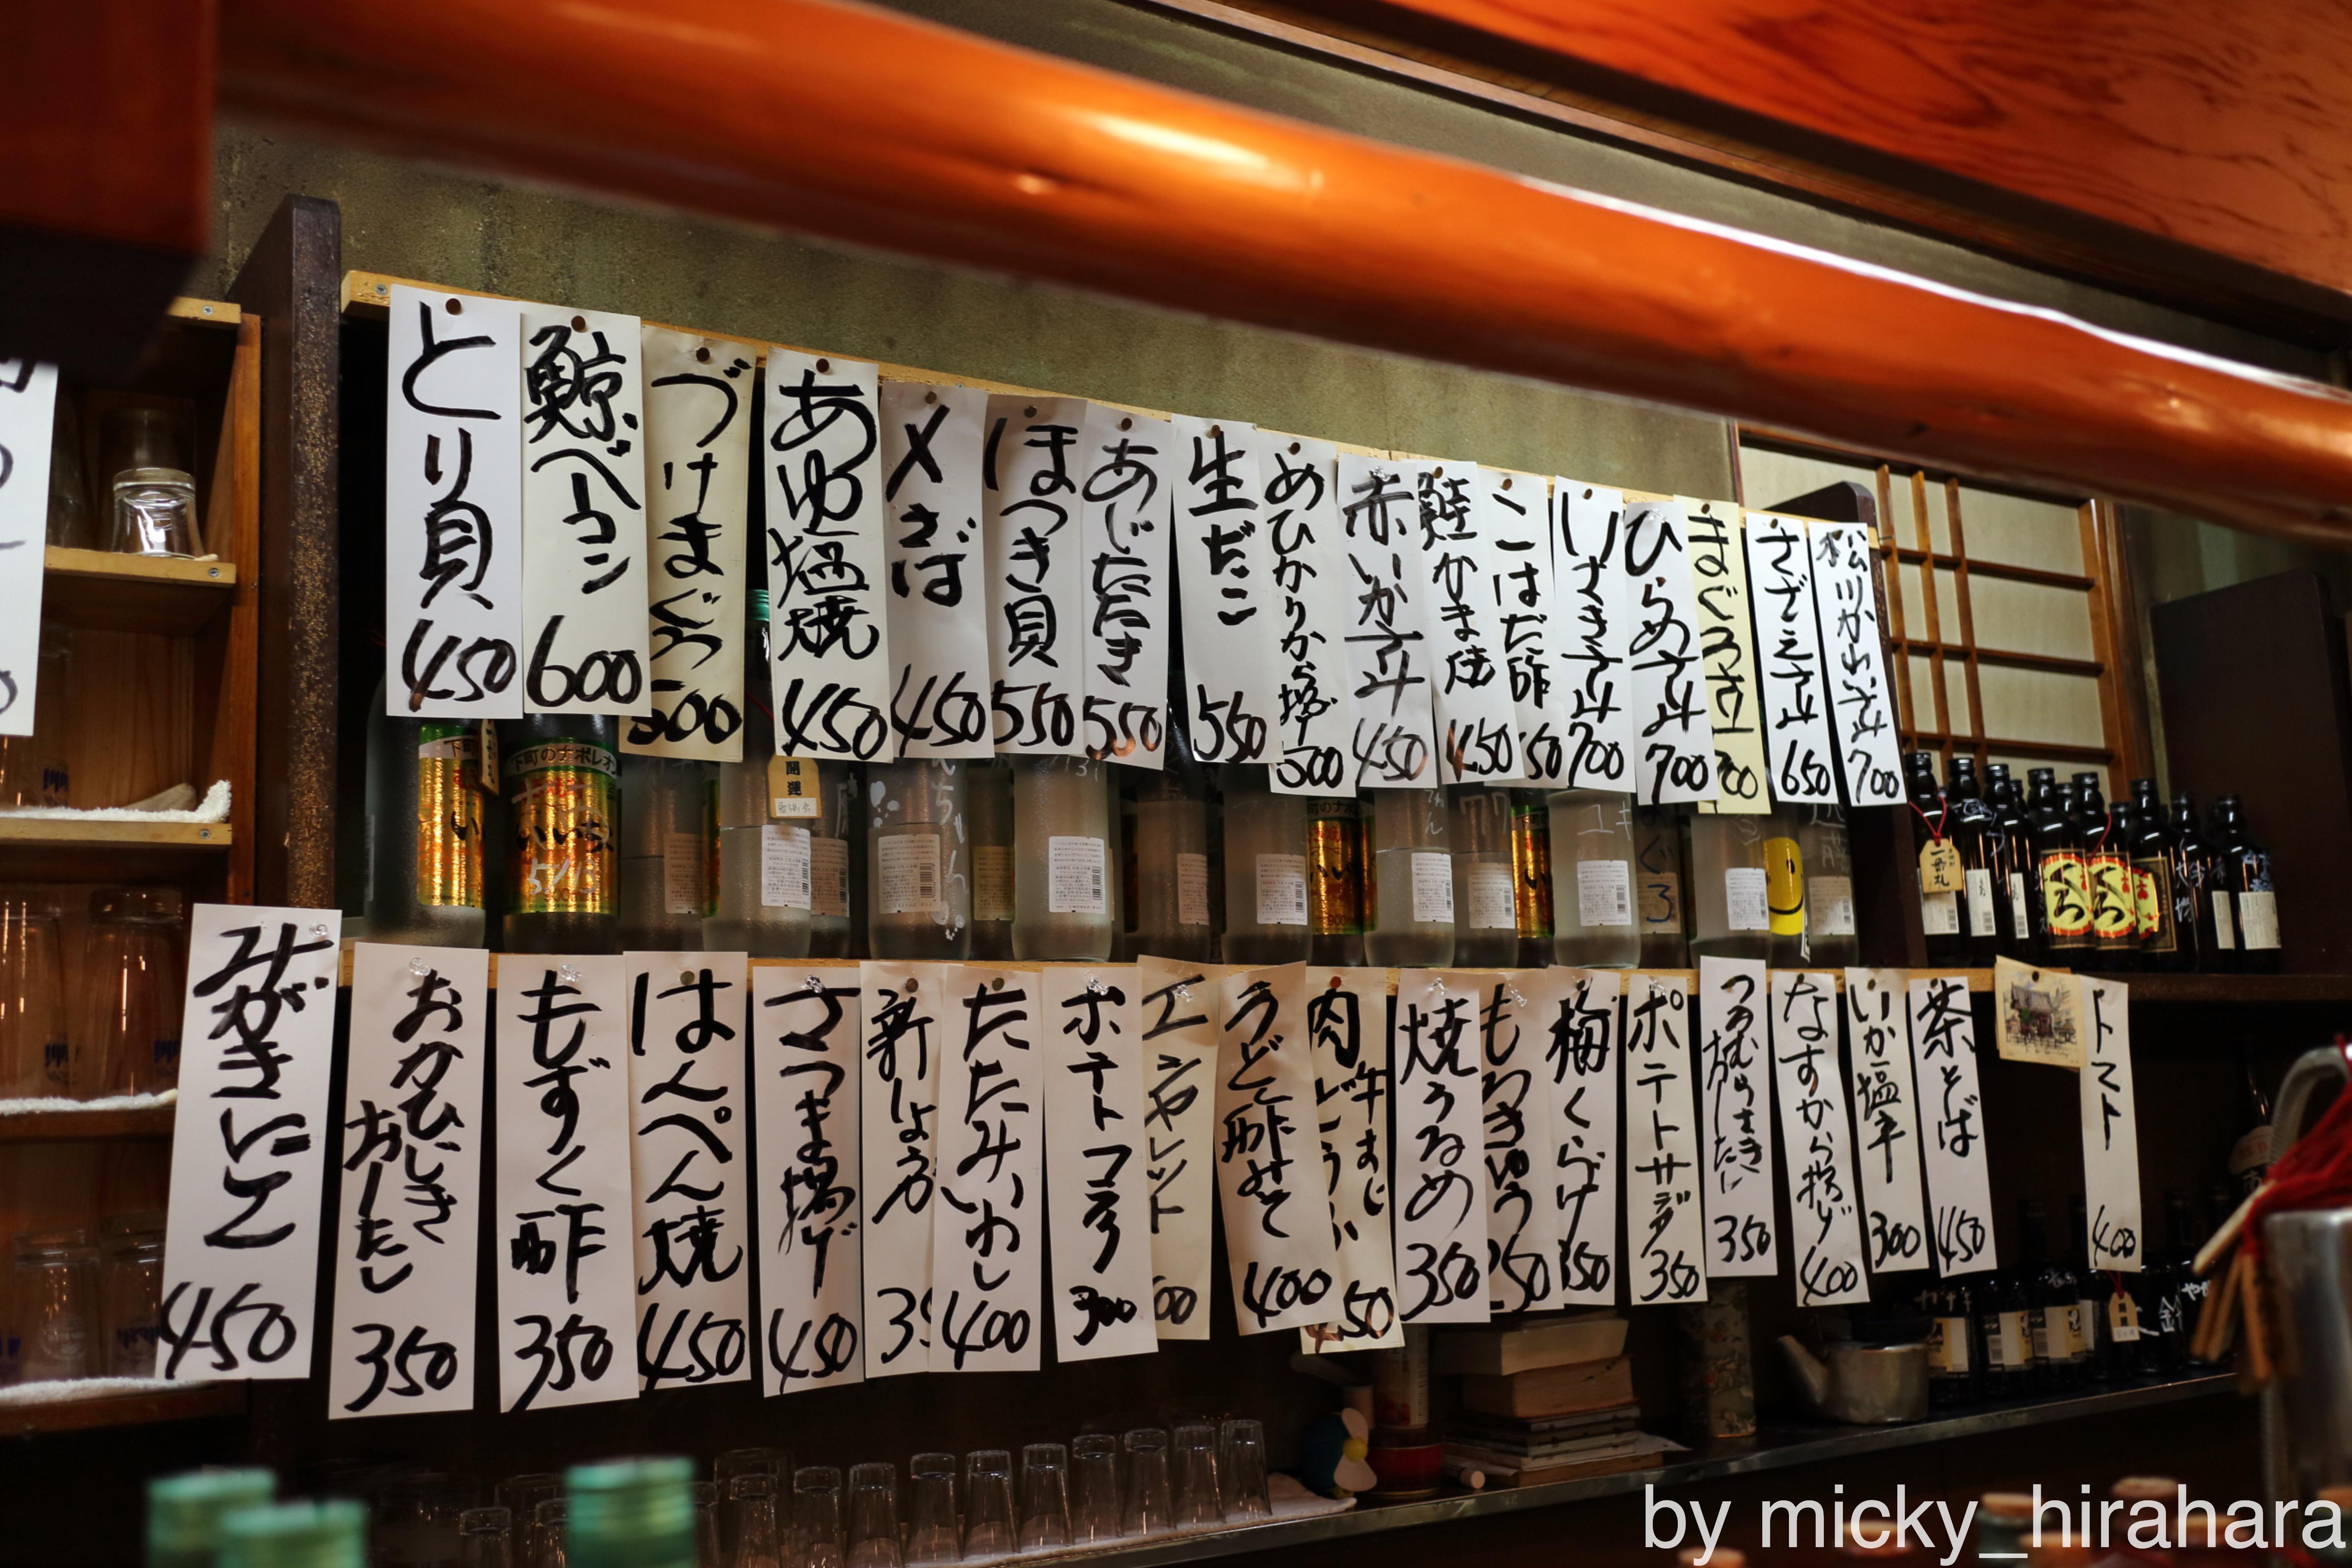 とり貝 450
鯨ベーコン 600
づけまぐろ 500
あゆ塩焼 450
〆さば 450
ほっき貝 550
あじたたき 550
生だこ 550
めひかりから揚げ 500
赤いか刺 450
鮭かま焼 450
こはだ酢 50
いさき刺 700
ひらめ刺 700
まぐろ刺 700
さざえ刺 650
松川かれい刺 700
下町のナポレオン
いいちこ
開運
くろ
くろ
みがきにしん 450
おかひじき
おしたし 350
もずく酢 350
はんぺん焼 450
さつま揚げ 450
新しょうが 35
たたみいわし 400
ポテトフライ 300
エシャレット 00
うど酢みそ 400
肉どうふ
牛すじ 450
焼うるめ 350
もろきゅう 250
梅くらげ 350
ポテトサラダ 350
つるむらさき
おしたし 350
なすから揚げ 400
いか塩辛 300
茶そば 450
トマト 400
by micky_hirahara